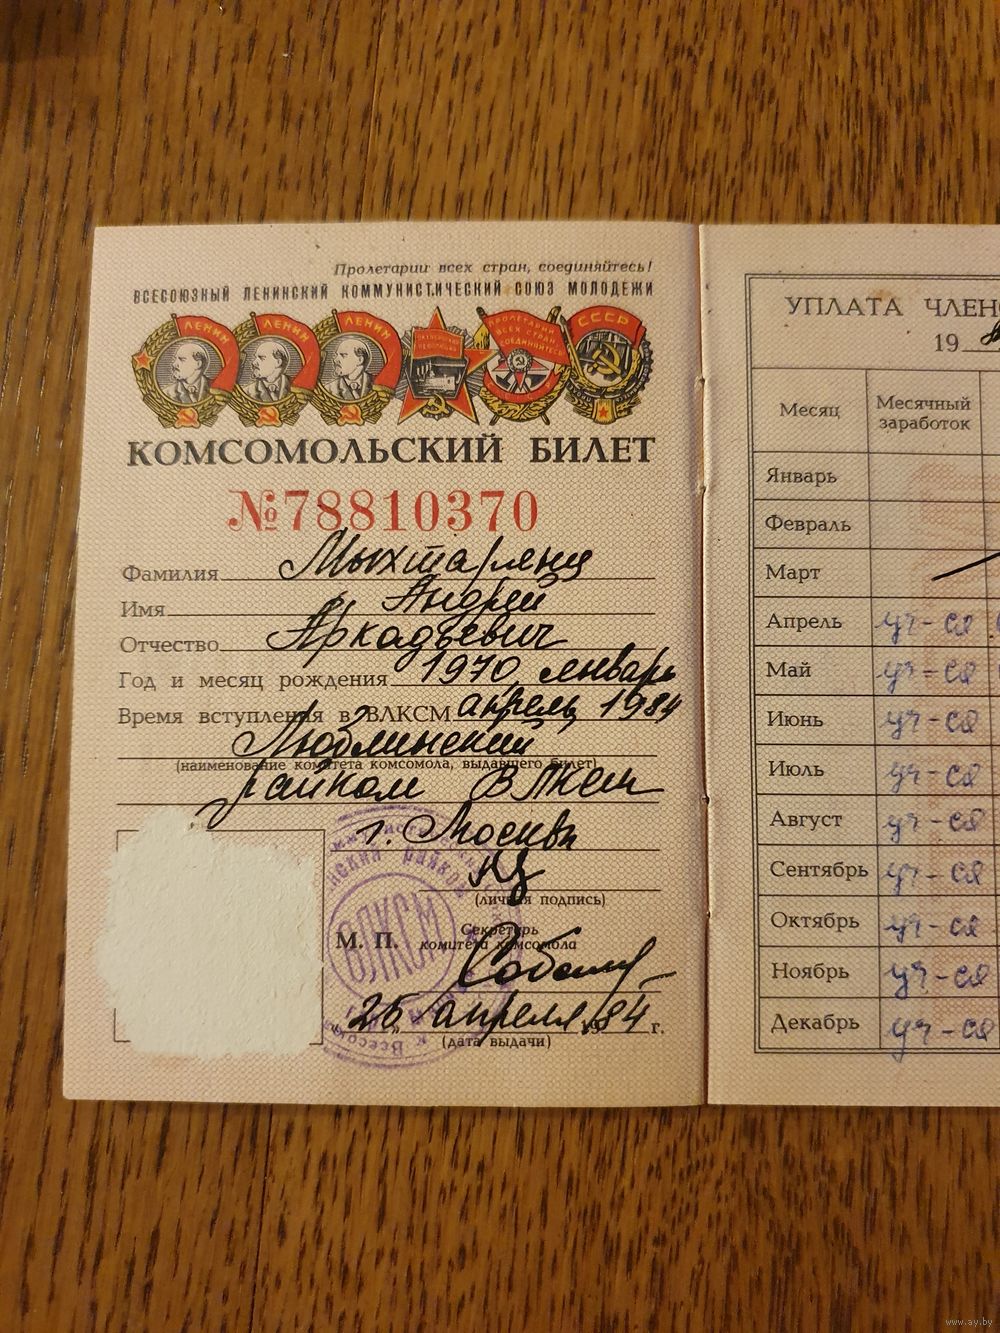 Пролетарии всех стран, соединяйтесь!
ВСЕСОЮЗНЫЙ ЛЕНИНСКИЙ КОММУНИСТИЧЕСКИЙ СОЮЗ МОЛОДЕЖИ
ЛЕНИН ЛЕНИН ЛЕНИН ПРОЛЕТАРИИ ВСЕХ СТРАН, СОЕДИНЯЙТЕСЬ СССР
КОМСОМОЛЬСКИЙ БИЛЕТ
№78810370
Фамилия Мыхтарянц
Имя Андрей
Отчество Аркадьевич
Год и месяц рождения 1970, январь
Время вступления в ВЛКСМ апрель 1984
Люблинский
(наименование комитета комсомола, выдавшего билет)
райком ВЛКСМ
г. Москвы
(личная подпись)
М. П. Секретарь
комитета комсомола
ВЛКСМ
„25“ апреля 1984 г.
(дата выдачи)
УПЛАТА ЧЛЕНС
19
Месяц Месячный заработок
Январь
Февраль
Март
Апрель уч-ся
Май уч-ся
Июнь уч-ся
Июль уч-ся
Август уч-ся
Сентябрь уч-ся
Октябрь уч-ся
Ноябрь уч-ся
Декабрь уч-ся
www.ay.by